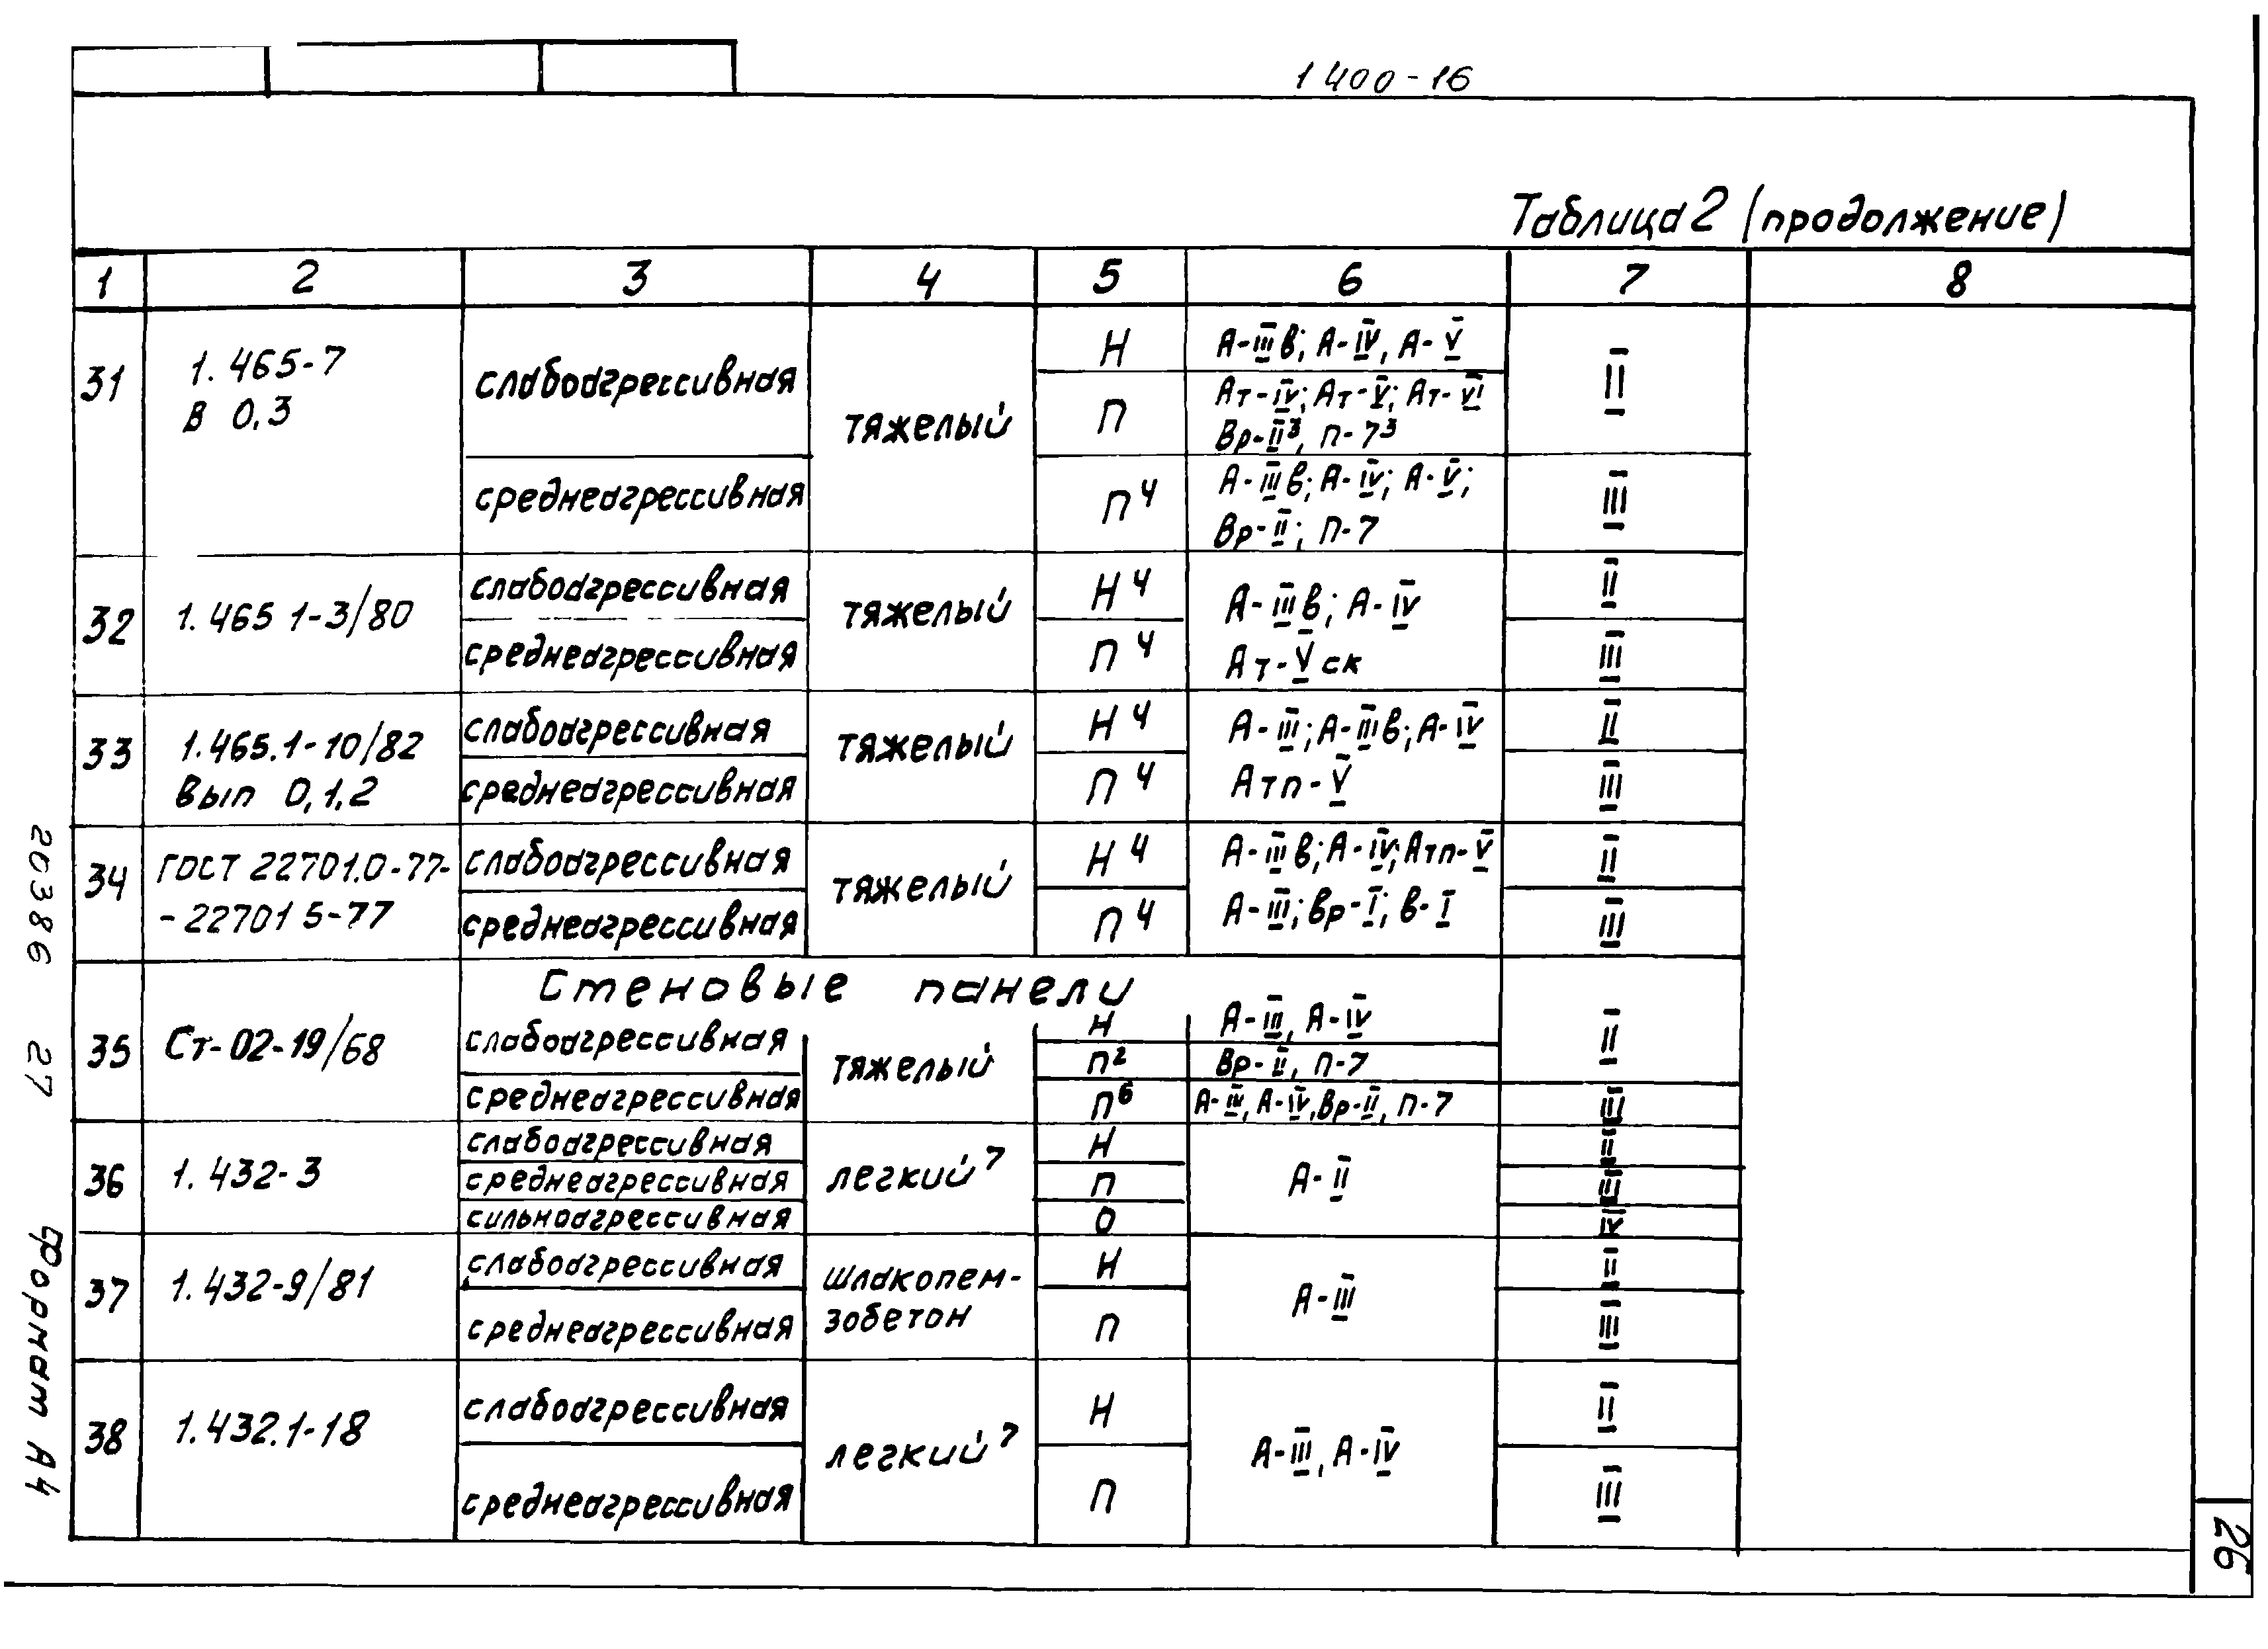 1 400-16
Таблица 2 (продолжение)
1 2 3 4 5 6 7 8
31 1. 465-7 В 0,3 слабоагрессивная тяжелый Н А-IIIв; А-IV, А-V II
П Ат-IV; Ат-V; Ат-VI
Вр-II³, П-7³
среднеагрессивная П⁴ А-IIIв; А-IV; А-V; III
Вр-II; П-7
32 1. 465 1-3/80 слабоагрессивная тяжелый Н⁴ А-IIIв; А-IV II
среднеагрессивная П⁴ Ат-Vск III
33 1.465.1-10/82 слабоагрессивная тяжелый Н⁴ А-III; А-IIIв; А-IV II
Вып 0,1,2 среднеагрессивная П⁴ Атп-V III
34 ГОСТ 22701.0-77- слабоагрессивная тяжелый Н⁴ А-IIIв; А-IV; Атп-V II
-22701 5-77 среднеагрессивная П⁴ А-III; Вр-I; В-I III
Стеновые панели
35 Ст-02-19/68 слабоагрессивная тяжелый Н А-III, А-IV II
П² Вр-II, П-7
среднеагрессивная П⁶ А-IV, А-IV, Вр-II, П-7 III
36 1. 432-3 слабоагрессивная легкий⁷ Н А-II II
среднеагрессивная П III
сильноагрессивная О IV
37 1. 432-9/81 слабоагрессивная шлакопем- Н А-III II
среднеагрессивная зобетон П III
38 1.432.1-18 слабоагрессивная легкий⁷ Н А-III, А-IV II
среднеагрессивная П III
20386 27
Формат А4
26